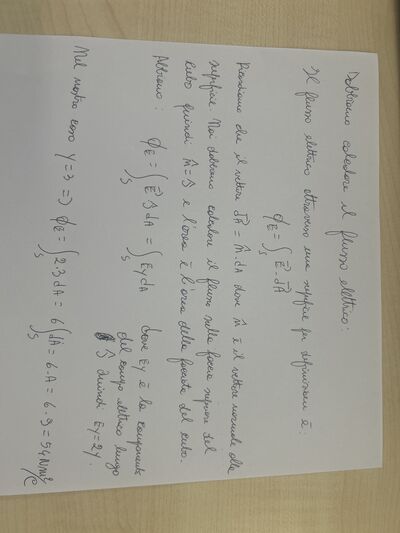 Dobbiamo calcolare il flusso elettrico:
Il flusso elettrico attraverso una superficie per definizione è:
ϕ_E = ∫_S E⃗ · dA⃗
Ricordiamo che il vettore dA⃗ = n̂ · dA dove n̂ è il vettore normale alla
superficie. Noi dobbiamo calcolare il flusso sulla faccia superiore del
cubo quindi n̂ = ĵ e l'area è l'area della facciata del cubo.
Abbiamo: ϕ_E = ∫_S E⃗ ĵ dA = ∫_S Ey dA dove Ey è la componente
del campo elettrico lungo
ĵ quindi Ey = 2y.
Nel nostro caso y = 3 => ϕ_E = ∫_S 2·3 dA = 6 ∫_S dA = 6·A = 6·9 = 54 Nm²/C